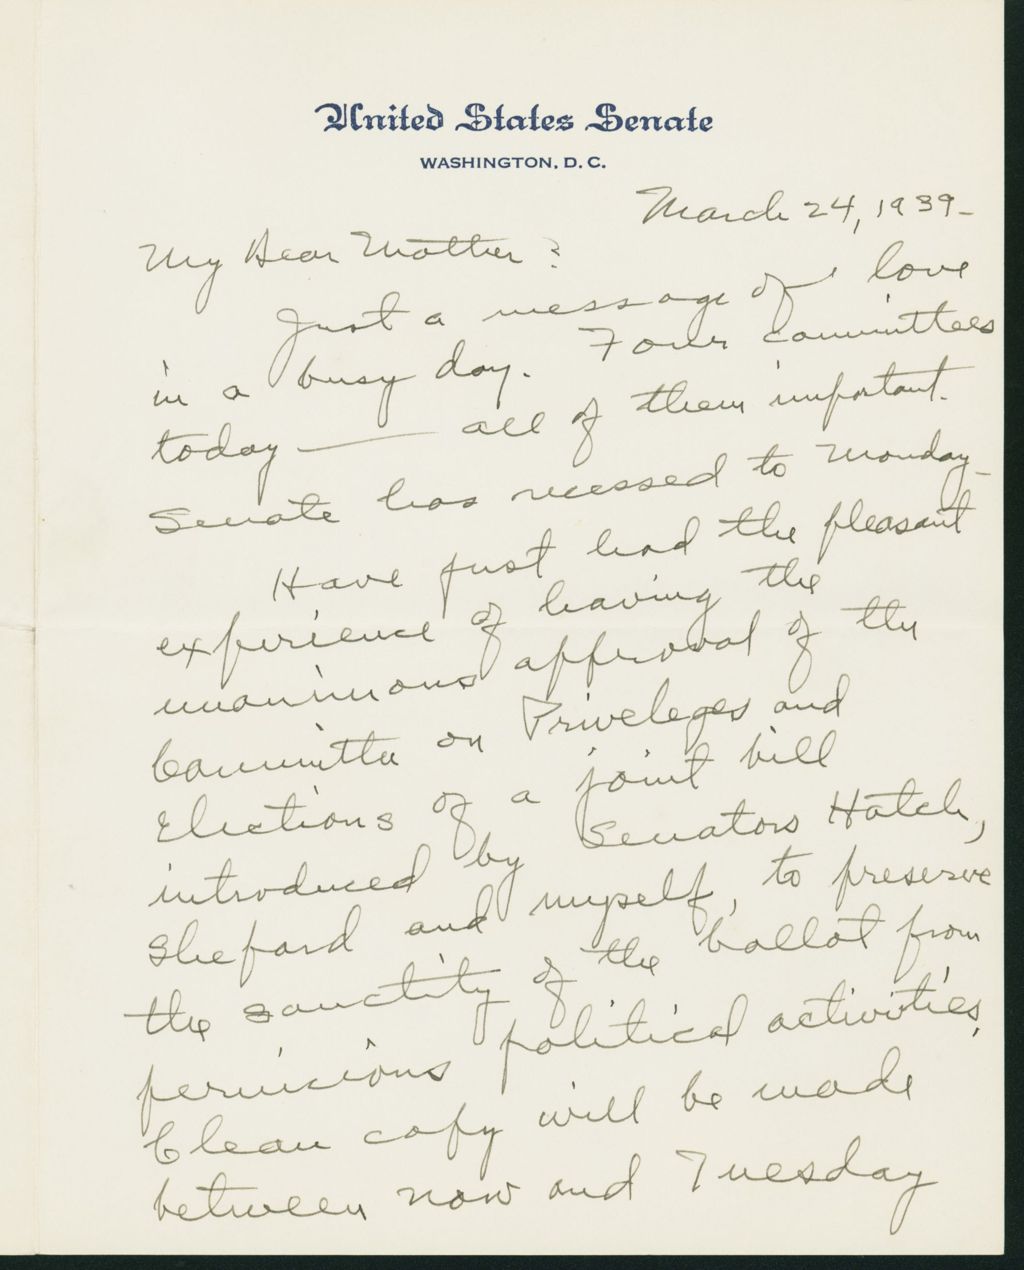 United States Senate
WASHINGTON, D. C.
March 24, 1939-
My Dear Mother:
Just a message of love
in a busy day. Four committees
today — all of them important.
Senate has recessed to Monday-
Have just had the pleasant
experience of having the
unanimous approval of the
Committee on Priveleges and
Elections of a joint bill
introduced by Senators Hatch,
Shepard and myself, to preserve
the sanctity of the ballot from
pernicious political activities.
Clean copy will be made
between now and Tuesday